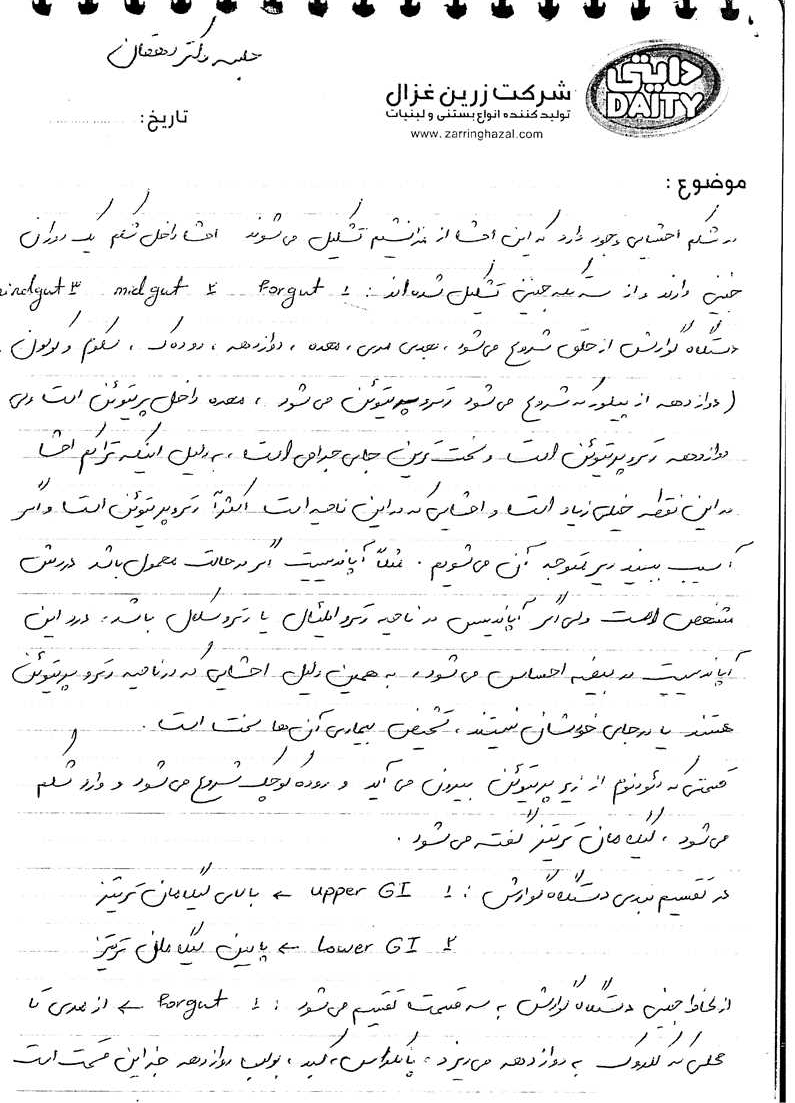 جلسه دکتر دهقان
دایتی
DAITY
شرکت زرین غزال
تولید کننده انواع بستنی و لبنیات
www.zarringhazal.com
تاریخ:
موضوع:
در شکم احشایی وجود دارد که این احشا از غذا تشکیل می‌شوند احشا داخل شکم یک دوران
جنینی دارند و از سه تکه جنینی تشکیل شده‌اند: ۱ forgut ۲ midgut ۳ hindgut
دستگاه گوارش از حلق شروع می‌شود، بعدی مری، معده، دوازدهه، روده ک، سکوم و کولون.
(دوازدهه از پیلور که شروع می‌شود رتروپریتوئن می‌شود، معده داخل پریتوئن است ولی
دوازدهه رتروپریتوئن است و سخت‌ترین جای جراحی است، به دلیل اینکه تراکم احشا
در این نقطه خیلی زیاد است و احشایی که در این ناحیه است اکثراً رتروپریتوئن است و اگر
آسیب ببیند دیر متوجه آن می‌شویم. مثلاً آپاندیسیت اگر در حالت معمول باشد دردش
مشخص است ولی اگر آپاندیس در ناحیه رتروایلئال یا رتروسکال باشد، درد این
آپاندیسیت در بیضه احساس می‌شود، به همین دلیل احشایی که در ناحیه رتروپریتوئن
هستند یا در جای خودشان نیستند، تشخیص بیماری آن‌ها سخت است.
قسمتی که دئودنوم از زیر پریتوئن بیرون می‌آید و روده کوچک شروع می‌شود و وارد شکم
می‌شود، لیگامان تریتز گفته می‌شود.
در تقسیم بندی دستگاه گوارش: ۱ upper GI ← بالای لیگامان تریتز
۲ Lower GI ← پایین لیگامان تریتز
از لحاظ جنینی دستگاه گوارش به سه قسمت تقسیم می‌شود: ۱ forgut ← از مری تا
محلی که کلدوک به دوازدهه می‌ریزد، پانکراس، کبد، بولب دوازدهه جز این قسمت است